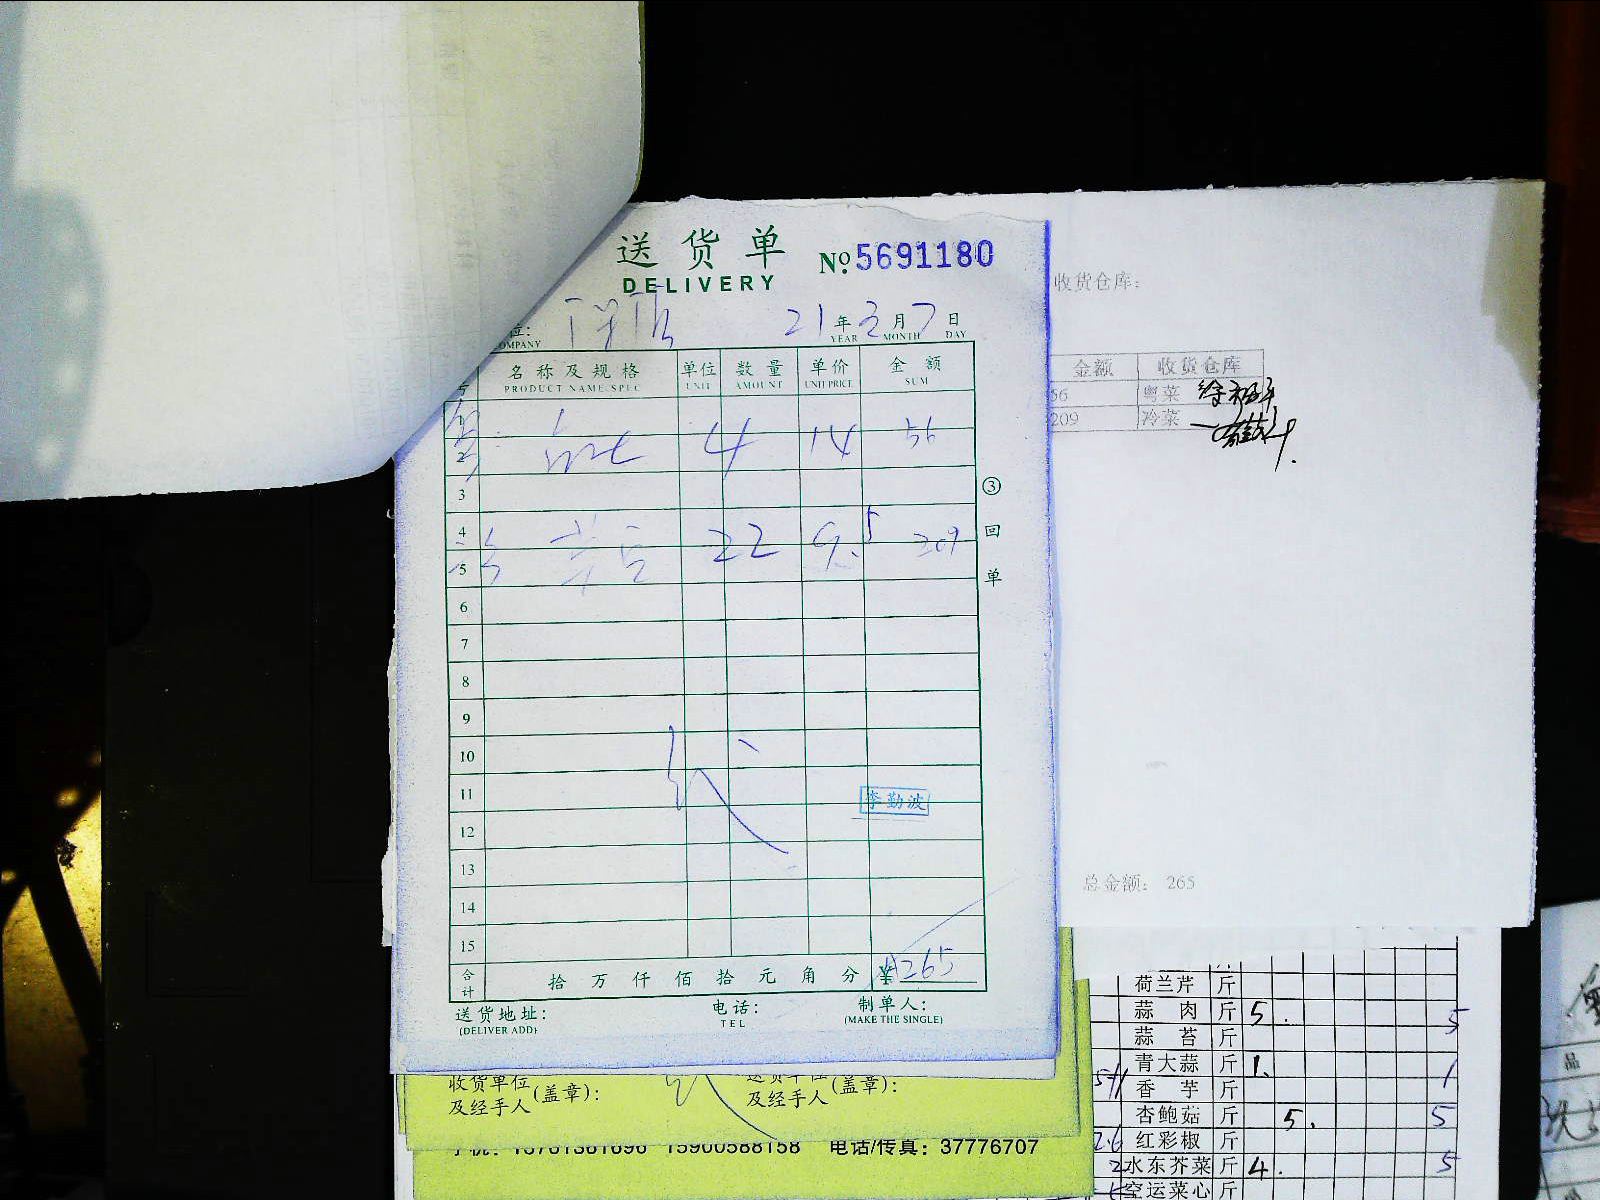 送货单 No.5691180
DELIVERY
位: 21年 月7日
COMPANY YEAR MONTH DAY
号 名称及规格 单位 数量 单价 金额
PRODUCT NAME SPEC UNIT AMOUNT UNIT PRICE SUM
4 14 56
3
4
22 9.5 209
5
6
7
8
9
10
11
李勤波
12
13
14
15
合计 拾万仟佰拾元角分 265
送货地址: 电话: 制单人:
(DELIVER ADD) TEL (MAKE THE SINGLE)
③回单
收货仓库:
金额 收货仓库
56 粤菜
209 冷菜
总金额: 265
收货单位及经手人(盖章): 送货单位及经手人(盖章):
手机: 13761361696 15900588158 电话/传真: 37776707
荷兰芹 斤
蒜肉 斤 5. 5
蒜苔 斤
青大蒜 斤 1. 1
香芋 斤
杏鲍菇 斤 5. 5
红彩椒 斤
水东芥菜 斤 4. 5
空运菜心 斤
品